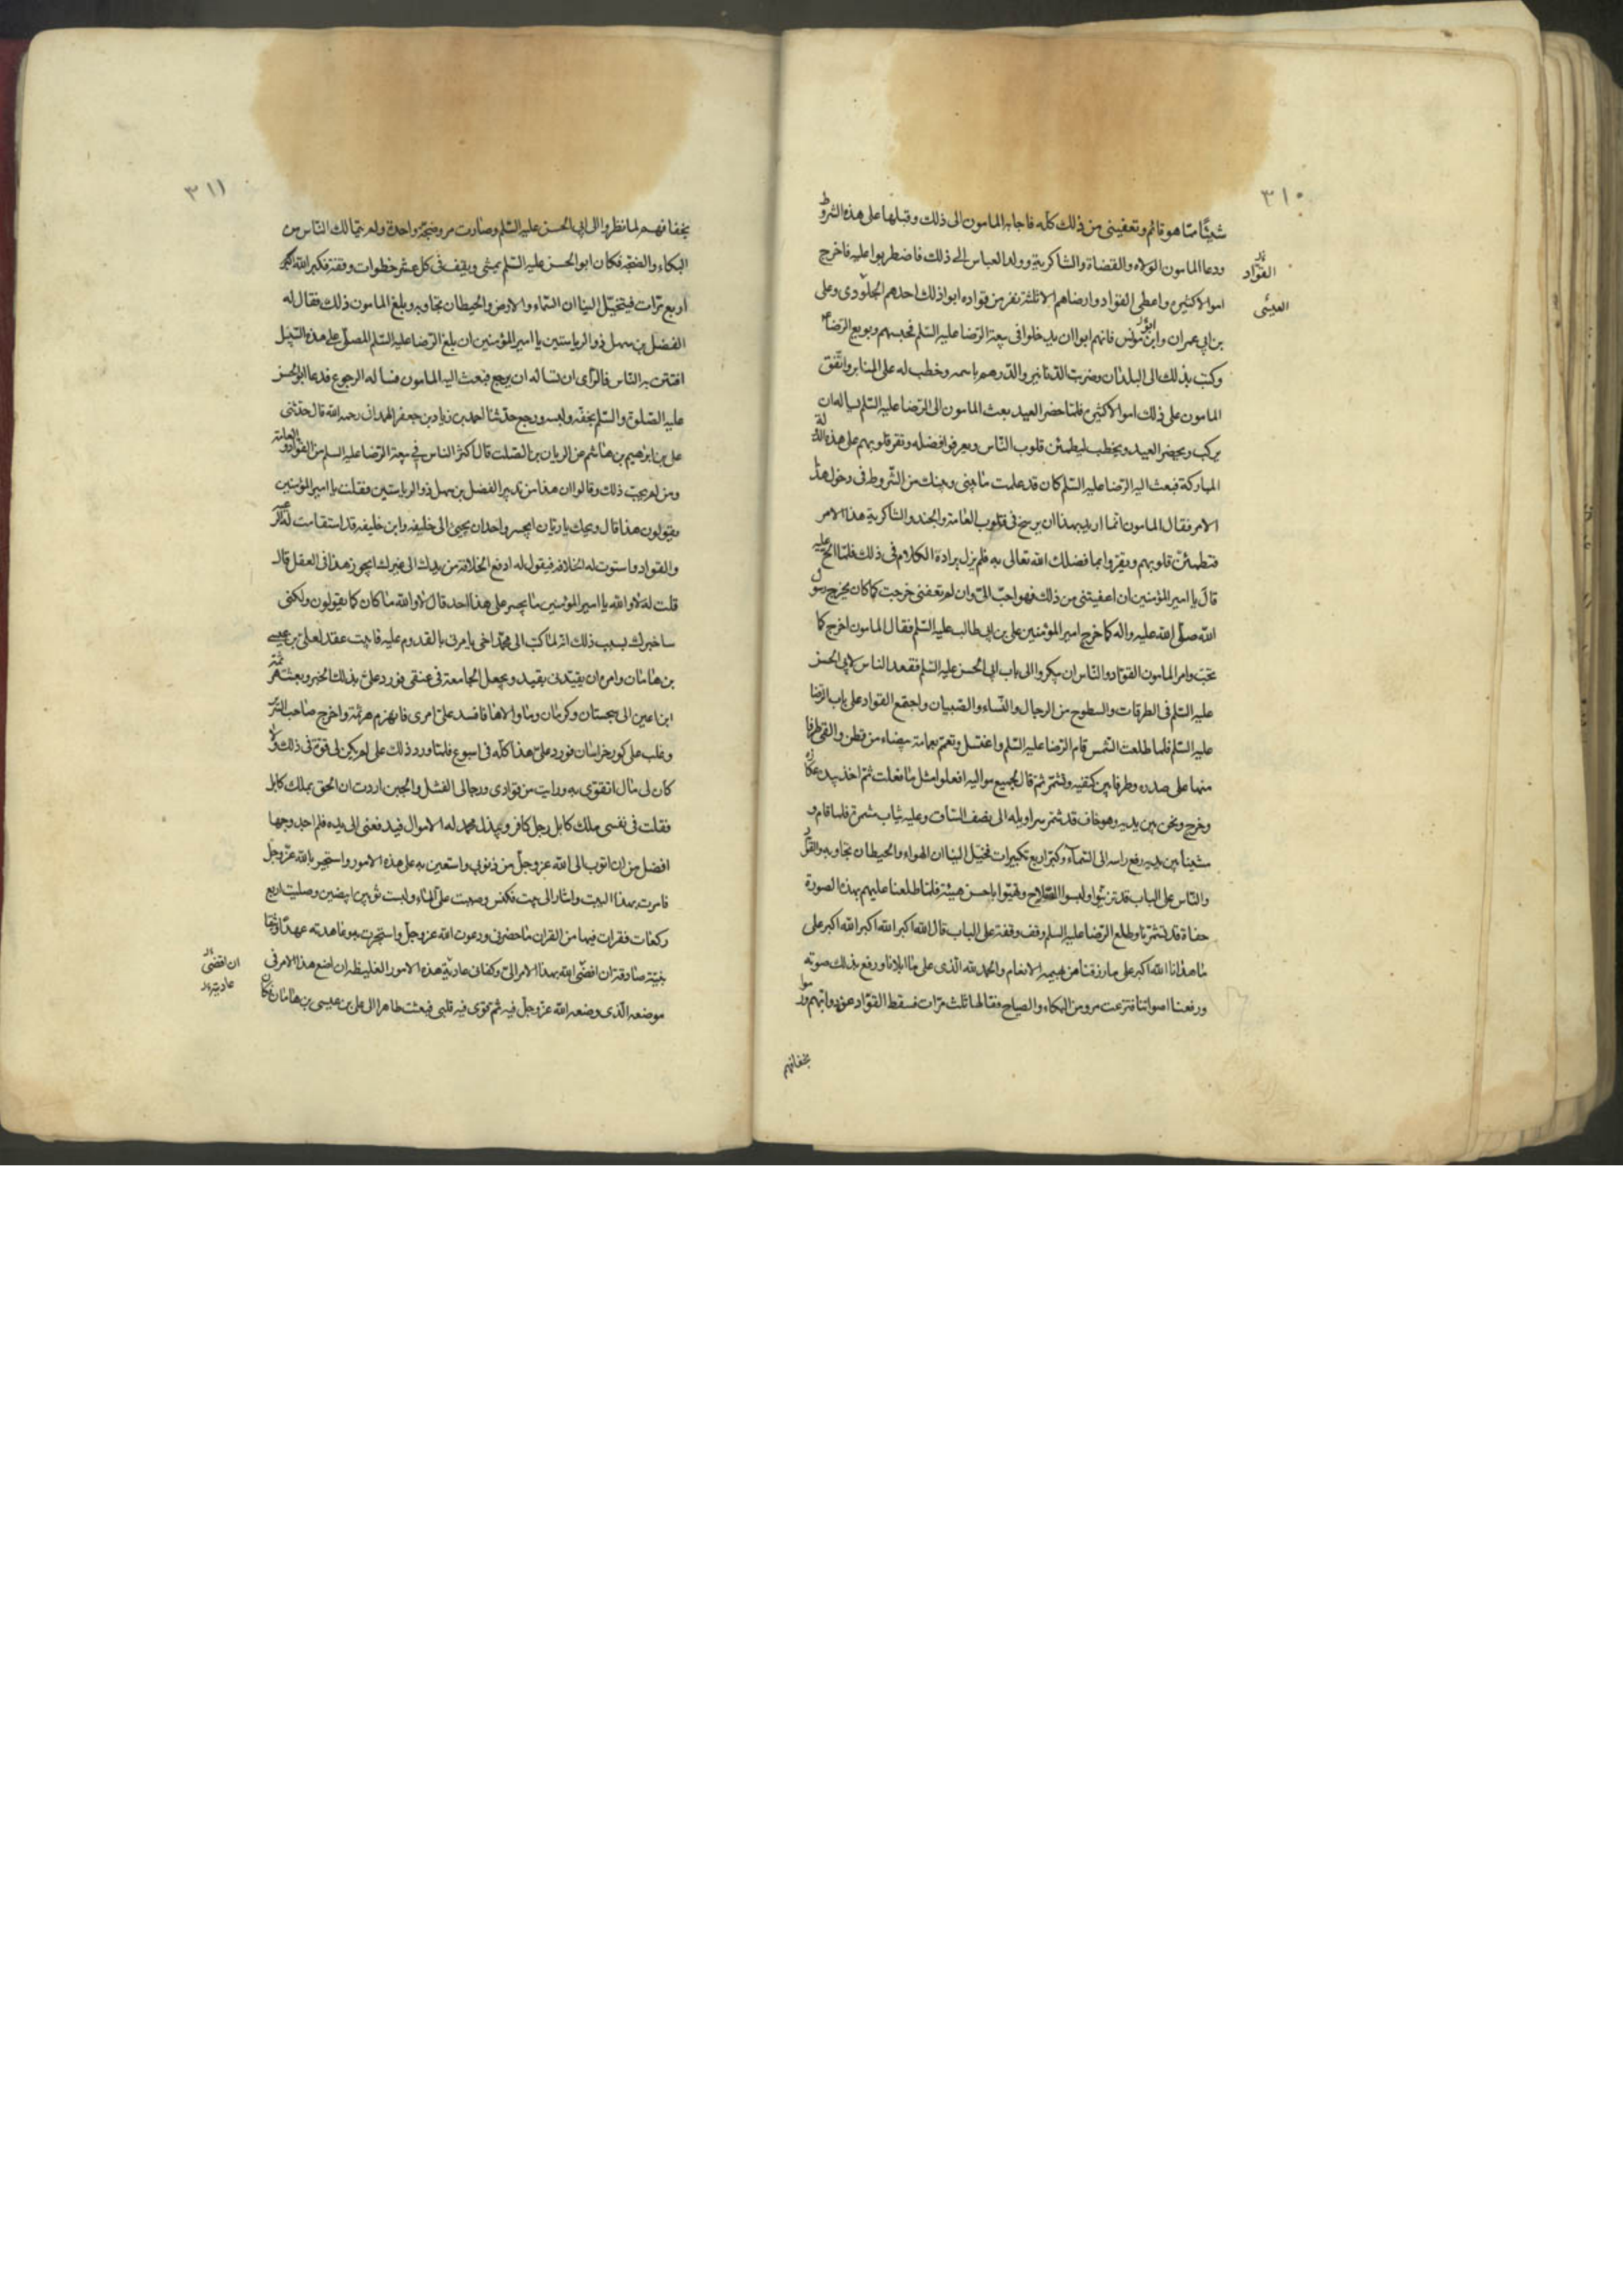 ٣١٠
شيئا مما هو قائم وتعفيني من ذلك كله فاجابه المامون الى ذلك وقبلها على هذه الشروط
ودعا المامون الولاه والقضاة والشاكرية وولد العباس الى ذلك فاضطربوا عليه فاخرج
القوّاد
اموالا كثيرة واعطى القواد وارضاهم الا ثلثة نفر من قواده ابوا ذلك احدهم الجلودى وعلى
بن ابى عمران وابن مونس فانهم ابوا ان يدخلوا فى بيعة الرضا عليه السلم فحبسهم وبويع الرضا
وكتب بذلك الى البلدان وضربت الدنانير والدرهم باسمه وخطب له على المنابر واتفق
المامون على ذلك اموالا كثيرة فلما حضر العيد بعث المامون الى الرضا عليه السلم يساله ان
يركب ويحضر العيد ويخطب ليطمئن قلوب الناس ويعرفوا فضله وتقر قلوبهم على هذه الدولة
المباركة فبعث اليه الرضا عليه السلم كان قد علمت ما بينى وبينك من الشروط فى دخول هذا
الامر فقال المامون انما اريد بهذا ان يرسخ فى قلوب العامة والجند والشاكرية هذا الامر
فتطمئن قلوبهم ويقروا بما فضلك الله تعالى به فلم يزل يرادة الكلام فى ذلك فلما الح عليه
قال يا امير المؤمنين ان اعفيتنى من ذلك فهو احب الى وان لم تعفنى خرجت كما كان يخرج رسول
الله صلى الله عليه واله كما خرج امير المؤمنين على بن ابى طالب عليه السلم فقال المامون اخرج كما
تحب وامر المامون القواد والناس ان يبكروا الى باب ابى الحسن عليه السلم فقعد الناس لابى الحسن
عليه السلم فى الطرقات والسطوح من الرجال والنساء والصبيان واجتمع القواد على باب الرضا
عليه السلم فلما طلعت الشمس قام الرضا عليه السلم واغتسل وتعمم بعمامة بيضاء من قطن والقى طرفا
منها على صدره وطرفا بين كتفيه وتشمر ثم قال لجميع مواليه افعلوا مثل ما فعلت ثم اخذ بيده عكازه
وخرج ونحن بين يديه وهو حاف قد شمر سراويله الى نصف الساق وعليه ثياب مشمرة فلما قام و
مشينا بين يديه رفع راسه الى السماء وكبر اربع تكبيرات فخيل الينا ان الهواء والحيطان تجاوبه والقواد
والناس على الباب قد تزينوا ولبسوا السلاح وتهيئوا باحسن هيئة فلما طلعنا عليهم بهذه الصورة
حفاة قد تشمرنا وطلع الرضا عليه السلم وقف وقفة على الباب قال الله اكبر الله اكبر الله اكبر على
ما هدانا الله اكبر على ما رزقنا من بهيمه الانعام والحمد لله الذى على ما ابلانا ورفع بذلك صوته
ورفعنا اصواتنا فتزعزعت مرو من البكاء والصياح فقالها ثلث مرات فسقط القواد عن دوابهم ورموا
بخفافهم
٣١١
بخفافهم لما نظروا الى ابى الحسن عليه السلم وصارت مرو ضجة واحدة ولم يتمالك الناس من
البكاء والضجه فكان ابو الحسن عليه السلم يمشى ويقف فى كل عشر خطوات وقفة فكبر الله اكبر
اربع مرات فيتخيل الينا ان السماء والارض والحيطان تجاوبه وبلغ المامون ذلك فقال له
الفضل بن سهل ذو الرياستين يا امير المؤمنين ان بلغ الرضا عليه السلم المصلى على هذه السبيل
افتتن به الناس فالراى ان تساله ان يرجع فبعث اليه المامون فساله الرجوع فدعا ابو الحسن
عليه الصلوة والسلم بخفه ولبسه ورجع حدثنا احمد بن زياد بن جعفر الهمدانى رحمه الله قال حدثنى
على بن ابرهيم بن هاشم عن الريان بن الصلت قال اكثر الناس فى بيعة الرضا عليه السلم من القواد والعامة
ومن لم يحب ذلك وقالوا ان هذا من تدبير الفضل بن سهل ذو الرياستين فقلت يا امير المؤمنين
يقولون هذا قال ويحك يا ريان ايجسر واحد ان يجيئ الى خليفه وابن خليفه قد استقامت له الرعية
والقواد واستوت له الخلافه فيقول له ادفع الخلافة من يدك الى غيرك ايجوز هذا فى العقل قال
قلت له لا والله يا امير المؤمنين ما يجسر على هذا احد قال لا والله ما كان كما يقولون ولكنى
ساخبرك بسبب ذلك انه لما كتب الى محمد اخى يامرنى بالقدوم عليه فابيت عقد لعلى بن عيسى
بن هامان وامره ان يقيدنى بقيد ويجعل الجامعة فى عنقى فورد على بذلك الخبر وبعثت هرثمة
ابن اعين الى سجستان وكرمان وما والاها فافسد على امرى فانهزم هرثمة واخرج صاحب السرير
وغلب على كور خراسان فورد على هذا كله فى اسبوع فلما ورد ذلك على لم يكن لى قوة فى ذلك ولا
كان لى مال اتقوى به ورايت من قوادى ورجالى الفشل والجبن اردت ان الحق بملك كابل
فقلت فى نفسى ملك كابل رجل كافر ويبذل محمد له الاموال فيدفعنى الى يده فلم اجد وجها
افضل من ان اتوب الى الله عز وجل من ذنوبى واستعين به على هذه الامور واستجير بالله عز وجل
فامرت بهذا البيت واشار الى بيت فكنس وصببت على الماء ولبست ثوبين ابيضين وصليت اربع
ركعات فقرات فيها من القران ما حضرنى ودعوت الله عز وجل واستجرت به وعاهدته عهدا وثيقا
بنية صادقة ان افضى الله بهذا الامر الى وكفانى عادية هذه الامور الغليظه ان اضع هذا الامر فى
ان افضى
عادية
موضعه الذى وضعه الله عز وجل فيه ثم قوى فيه قلبى فبعثت طاهرا الى على بن عيسى بن هامان فكان